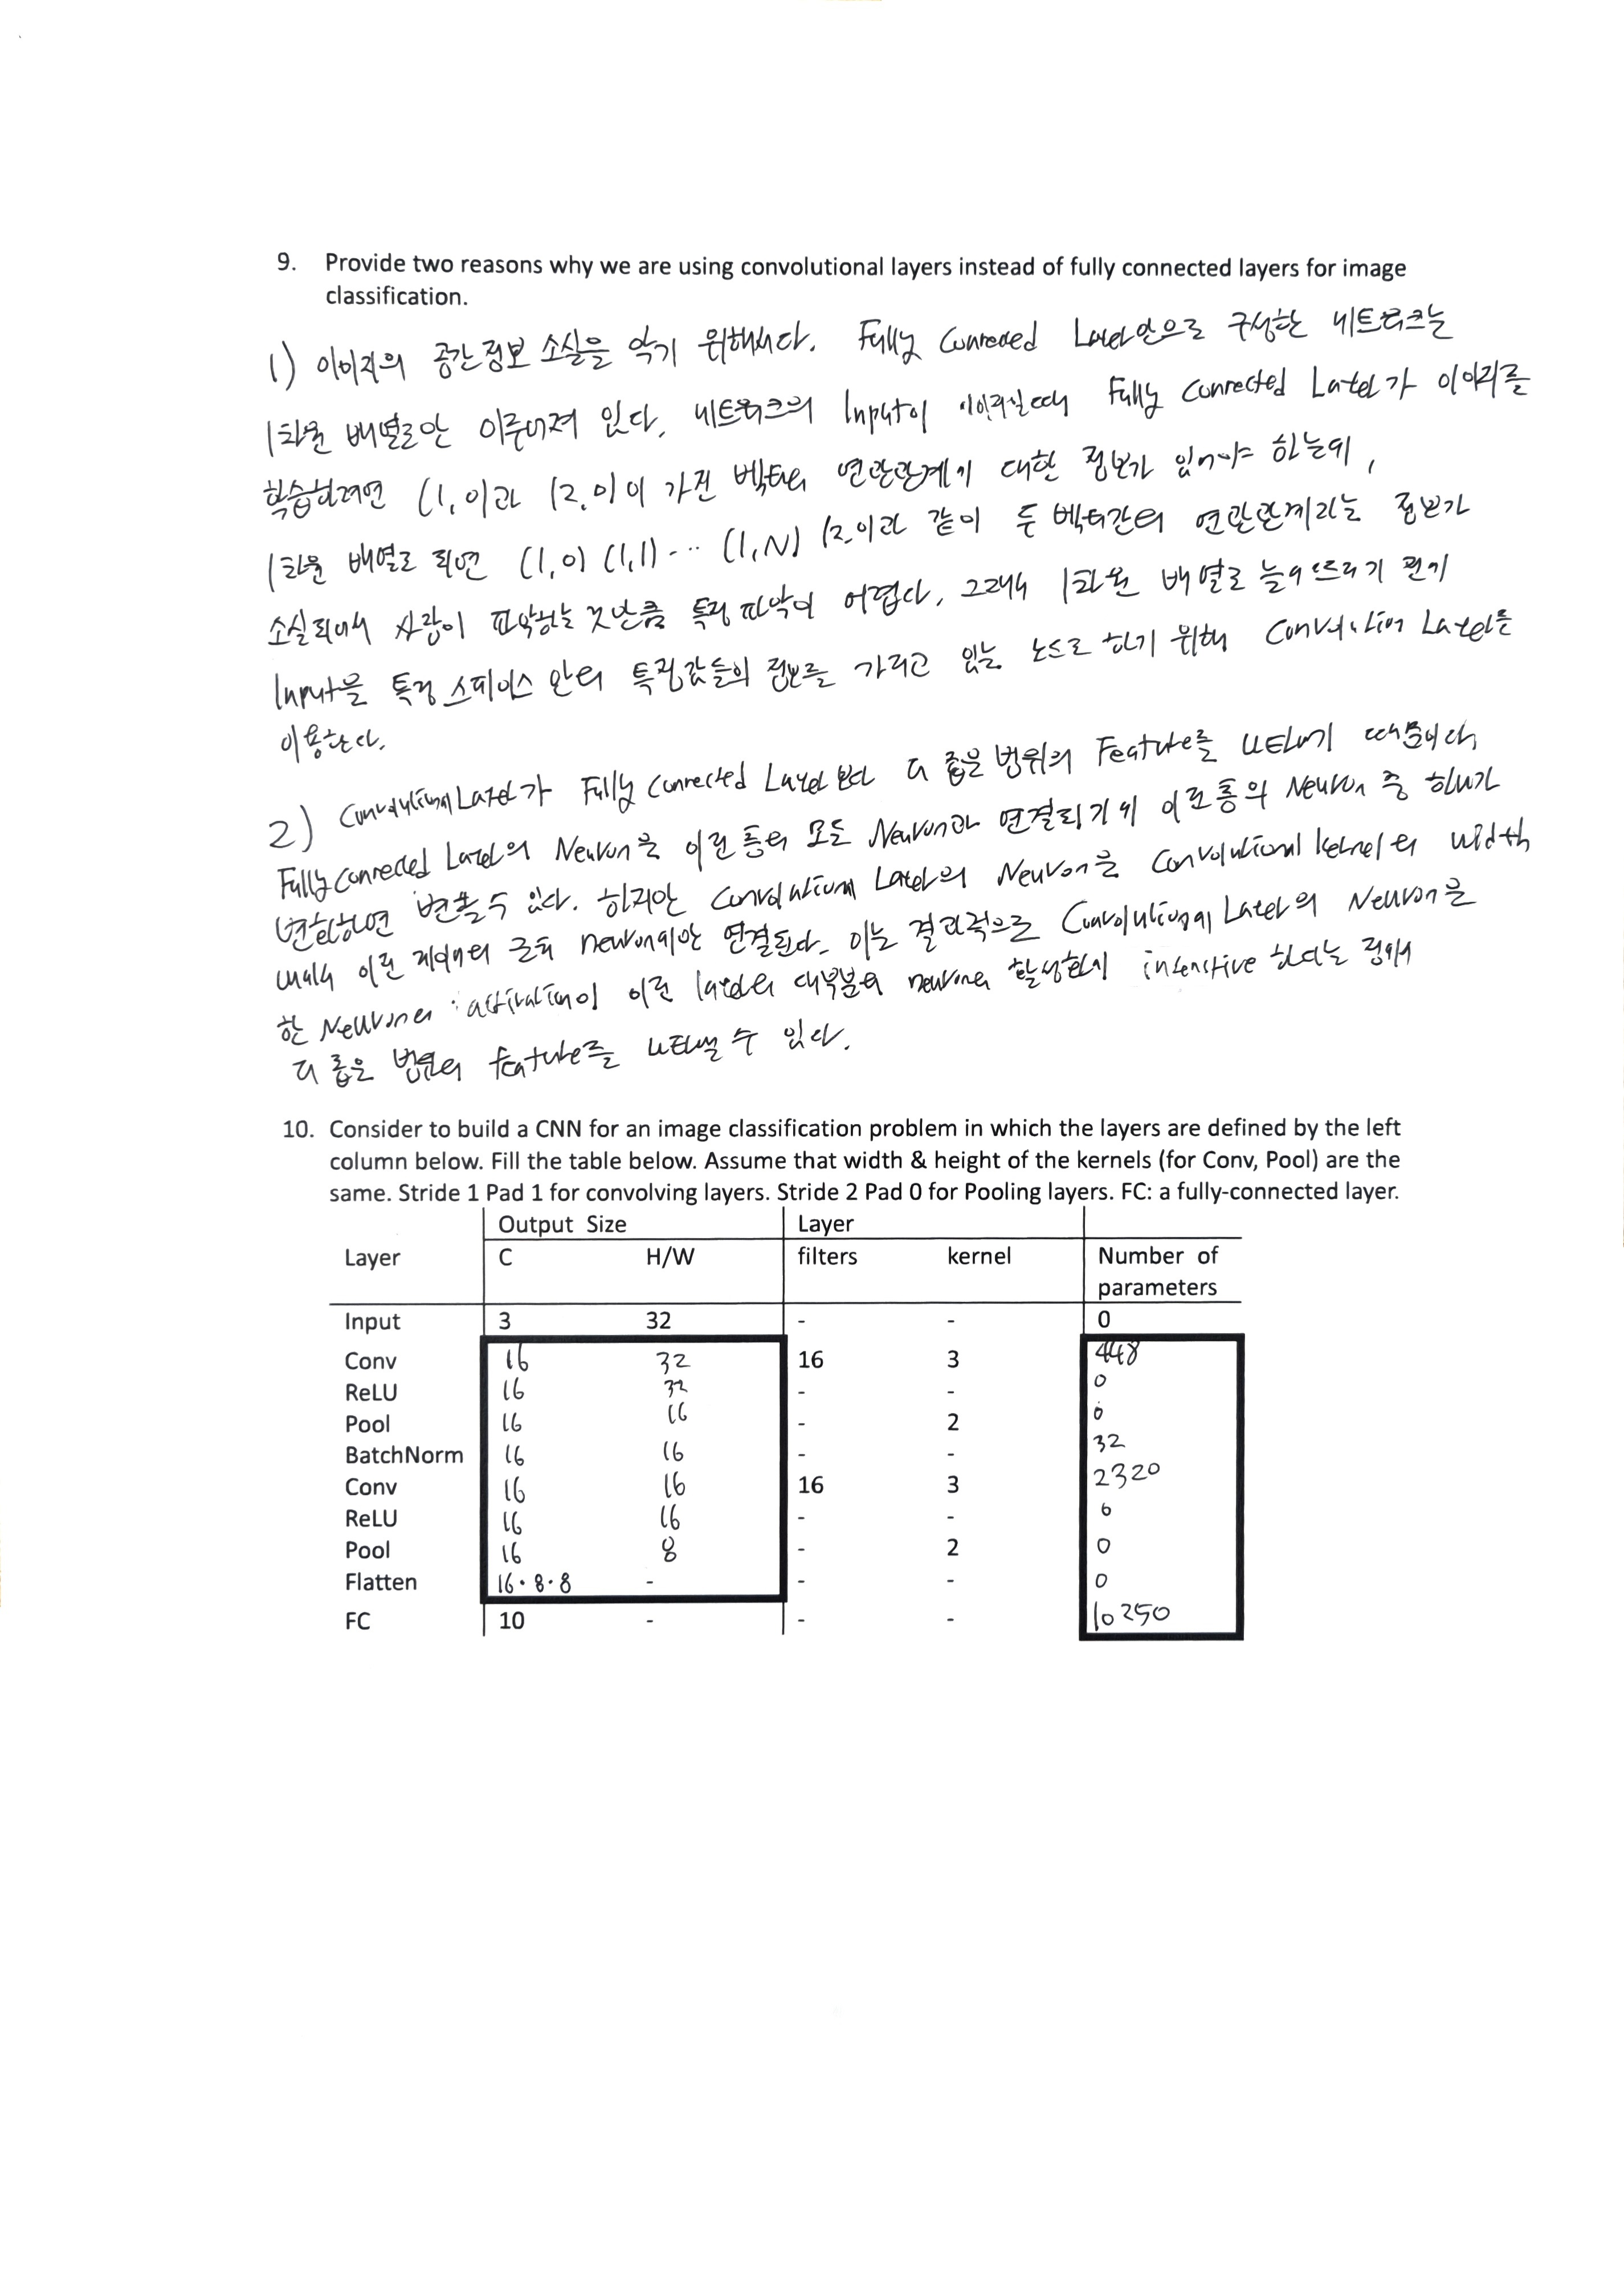 9. Provide two reasons why we are using convolutional layers instead of fully connected layers for image
classification.
1) 이미지의 공간정보 소실을 막기 위해서다. Fully Connected Layer만으로 구성한 네트워크는
1차원 배열로만 이루어져 있다. 네트워크의 Input이 이미지일때 Fully Connected Layer가 이미지를
학습하려면 (1,0)과 (2,0)이 가진 벡터의 연관관계에 대한 정보가 있어야 하는데,
1차원 배열로 펴면 (1,0) (1,1) ... (1,N) (2,0)과 같이 두 벡터간의 연관관계라는 정보가
소실되어서 사람이 파악하는 것만큼 특징 파악이 어렵다. 그래서 1차원 배열로 늘어뜨리기 전에
Input을 특정 스페이스 안의 특징값들의 정보를 가지고 있는 노드로 하기 위해 Convolution Layer를
이용한다.
2) Convolutional Layer가 Fully Connected Layer 보다 더 좁은 범위의 Feature를 나타내기 때문이다.
Fully Connected Layer의 Neuron은 이전 층의 모든 Neuron과 연결되기에 이전층의 Neuron 중 하나가
변화하면 변할 수 있다. 하지만 Convolutional Layer의 Neuron은 Convolutional kernel의 width
내에서 이전 레이어의 근처 neuron에만 연결된다. 이는 결과적으로 Convolutional Layer의 Neuron은
한 Neuron의 activation이 이전 layer의 대부분의 neuron의 활성화에 insensitive 하다는 점에서
더 좁은 범위의 feature를 나타낼 수 있다.
10. Consider to build a CNN for an image classification problem in which the layers are defined by the left
column below. Fill the table below. Assume that width & height of the kernels (for Conv, Pool) are the
same. Stride 1 Pad 1 for convolving layers. Stride 2 Pad 0 for Pooling layers. FC: a fully-connected layer.
Output Size Layer
Layer C H/W filters kernel Number of
parameters
Input 3 32 - - 0
Conv 16 32 16 3 448
ReLU 16 32 - - 0
Pool 16 16 - 2 0
BatchNorm 16 16 - - 32
Conv 16 16 16 3 2320
ReLU 16 16 - - 0
Pool 16 8 - 2 0
Flatten 16·8·8 - - - 0
FC 10 - - - 10250